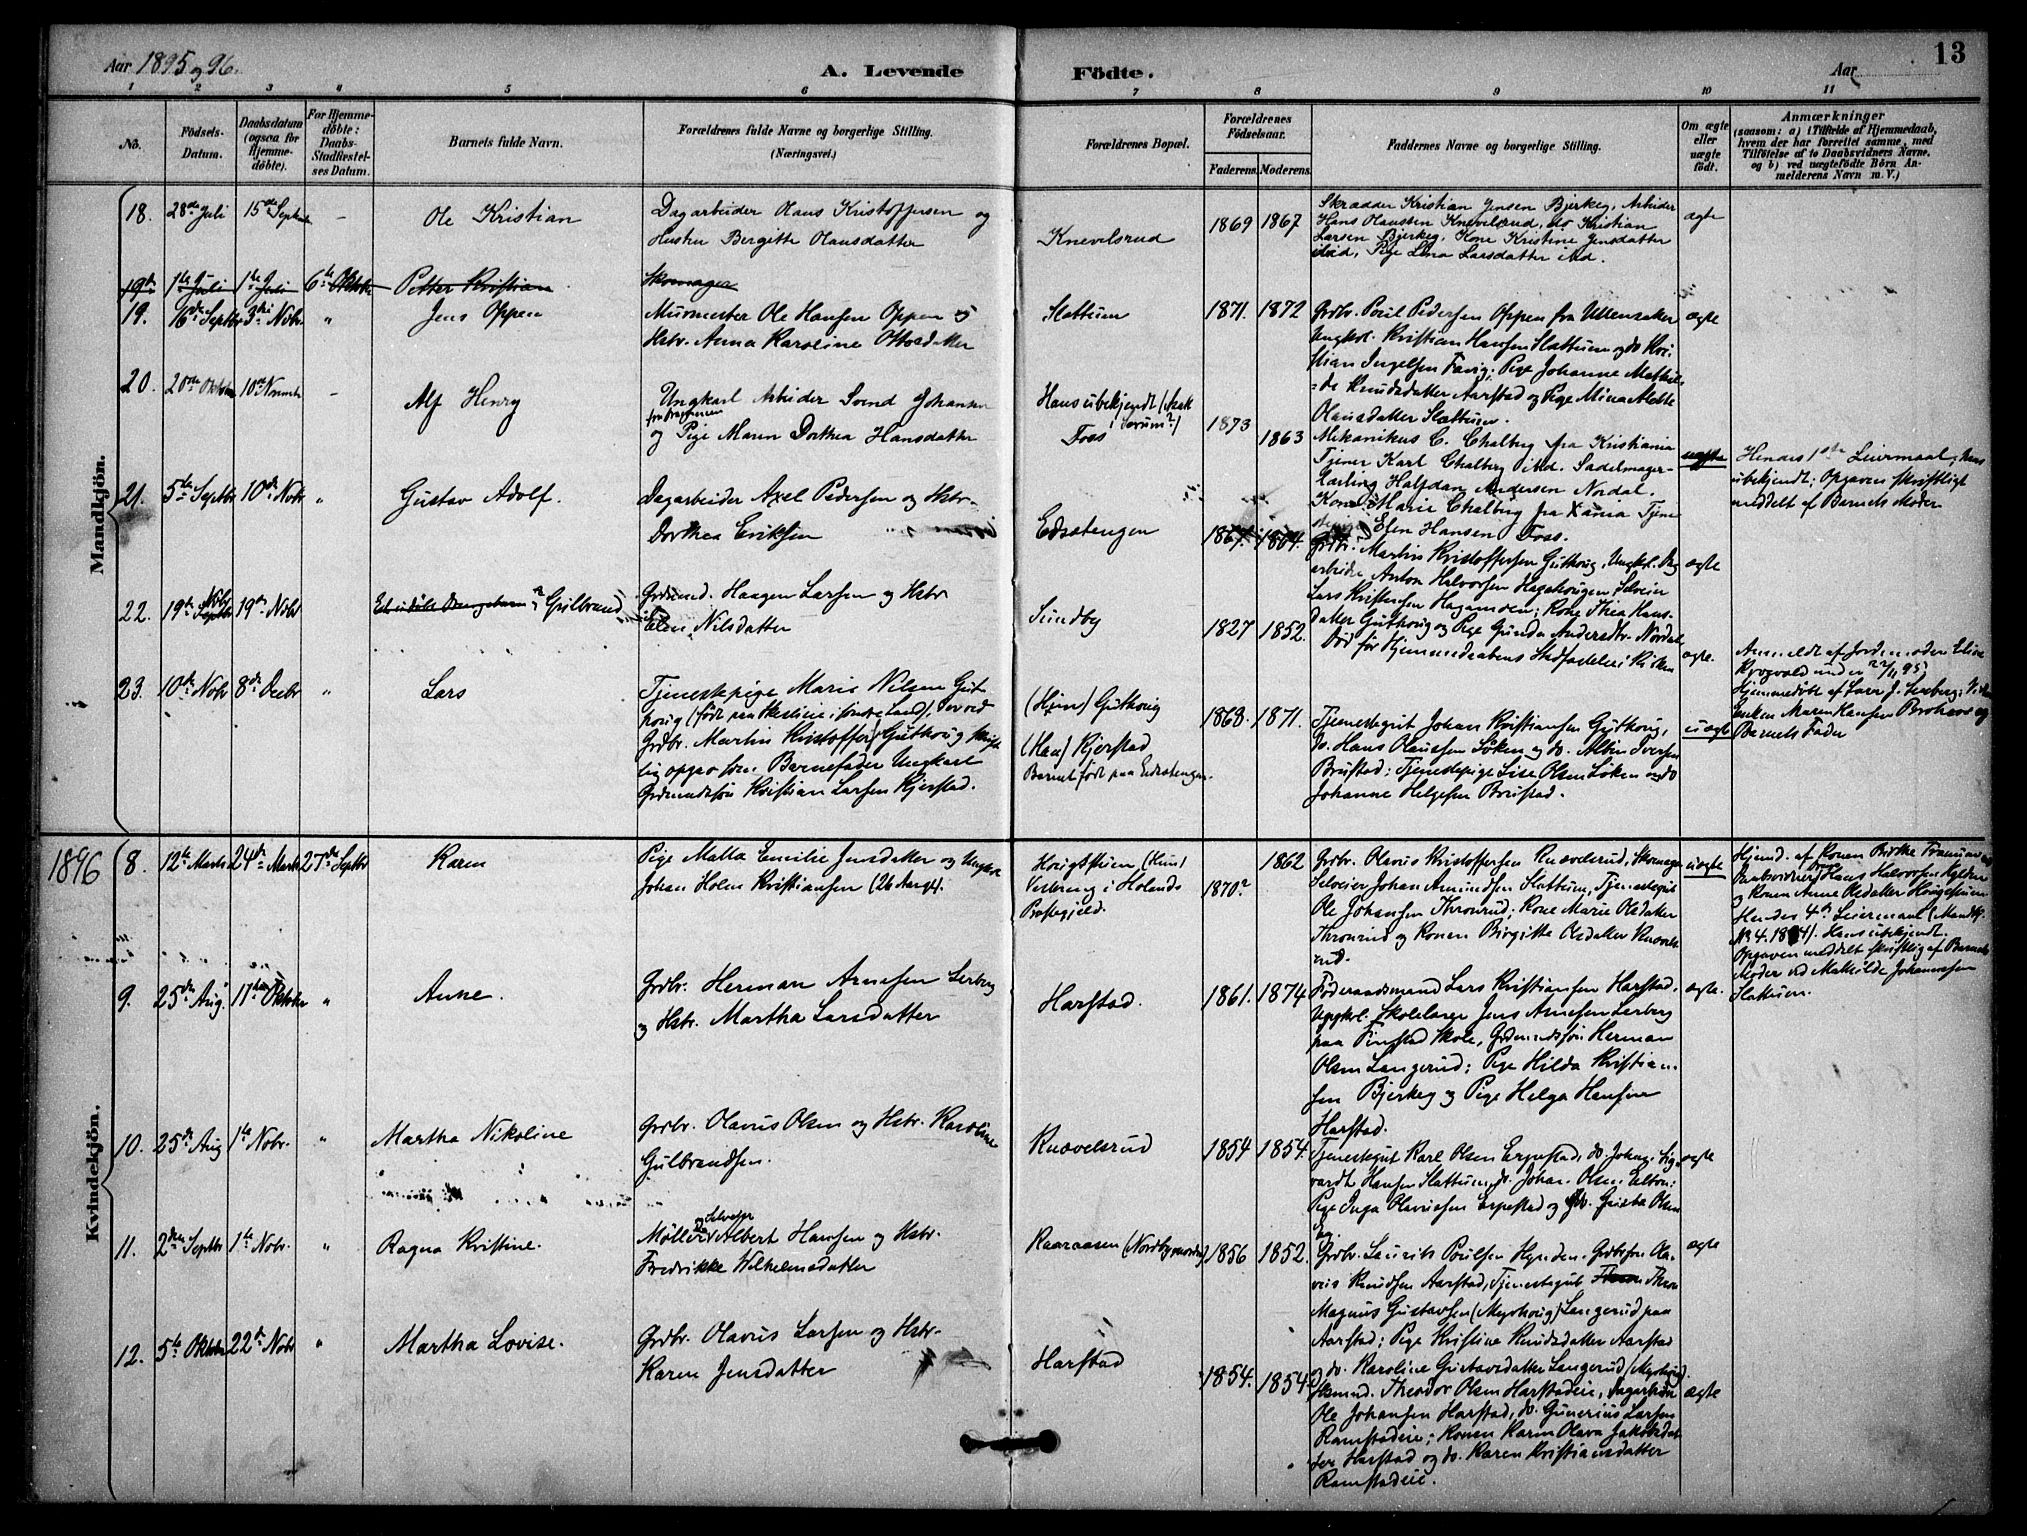 Aar 1895 og 96.
A. Levende Födte.
Aar
13
1 2 3 4 5 6 7 8 9 10 11
No.
Födsels-Datum.
Daabsdatum (ogsaa for Hjemme-döbte).
For Hjemme-döbte: Daabs-Stadfæstel-ses Datum.
Barnets fulde Navn.
Forældrenes fulde Navne og borgerlige Stilling.
(Næringsvei.)
Forældrenes Bopæl.
Forældrenes Födselsaar.
Faderens. Moderens.
Faddernes Navne og borgerlige Stilling.
Om ægte eller uægte födt.
Anmærkninger
(saasom: a) i Tilfælde af Hjemmedaab, hvem der har forrettet samme, med Tilföielse af to Daabsvidners Navne, og b) ved uægtefödte Börn An-melderens Navn m. V.)
Mandkjön.
18. 28de Juli 15de Septbr - Ole Kristian
Dagarbeider Hans Kristoffersen og
Hustru Bergitte Hansdatter
Knevelsrud 1869 1867
Skrædder Kristian Jensen Bjerkeg, Arbeider
Hans Haussen Knevelsrud, do Kristian
Larsen Bjerkeg, Kone Kristine Jensdatter
ibid, Pige Lina Larsdatter ibid.
ægte
19de 1ste Juli 1ste Juli 6te Oktober Petter Kristian Skomager
19. 16de Septbr 3die Novbr. " Jens Oppen
Murmester Ole Hansen Oppen og
Hstr. Anna Karoline Ottosdatter
Slattum 1871. 1872
Grdbr. Poul Pedersen Oppen fra Ullensaker
Ungkl. Kristian Hansen Slattum og do Kri-
stian Ingelsen Favig; Pige Johanne Mathil-
de Knudsdatter Aarstad og Pige Mina Mathe
Olausdatter Slattum.
ægte
20. 20de Oktober 10de Novemb - Alf Henry
Ungkarl Arbeider Svend Johansen
og Pige Maren Dorthea Hansdatter
Hans ubekjendt
Foss 1873 1863
Mekanikus C. Chalberg fra Kristiania
Tjener Karl Chalberg ibid. Sadelmager-
Lærling Halfdan Andersen Nordal.
Kone Marie Chalberg fra Xania Tjene
Elen Hansen Foss.
uægte
Hendes 1ste Leiermaal; hans
ubekjendt; Opgaven skriftligt
meddelt af Barnets Moder
21. 5te Septbr 10de Novbr " Gustav Adolf.
Dagarbeider Axel Pedersen og Hstr.
Dorthea Eriksen
Edsstengen 1867. 1864.
Grdbr. Martin Kristoffersen Guthoug, Ungkl. Dag
arbeider Anton Halvorsen Hagahougen Selveier
Lars Kristensen Hagamoen; Kone Thea Hans-
datter Guthoug og Pige Gunda Andersdtr. Nordal
ægte
22. 19de Novbr 19de Novbr Gulbrand
Grdmd. Haagen Larsen og Hstr
Elen Nilsdatter
Sundby 1827 1852.
Död för Hjemmedaabens Stadfæstelse i Kirken
ægte.
Anmeldt af Jordemoder Elise
Rygvold under 22/11 95;
Hjemmedöbt af Lars J. Lerberg; Vidner
Enken Maren Hansen og
Barnets Fader
23. 10de Novbr 8de Decbr " Lars
Tjenestepige Marie Nilsen Gut
houg (födt paa i Söndre Land),
Grdbr. Martin Kristoffersen Guthoug skrift
lig opgav som Barnefader Ungkarl
Grdmandssön Kristian Larsen Kjerstad.
(Hun) Guthoug
(Han) Kjerstad
Barnet födt paa Edsstengen.
1868. 1871.
Tjenestegut Johan Kristiansen Guthoug,
do. Hans Olaussen Löken og do. Albin Iversen
Brustad; Tjenestepige Lise Olsen Löken og do
Johanne Helgesen Brustad.
uægte
1896
Kvindekjön.
8. 12te Marts 24de Marts 27de Septbr Karen
Pige Malla Emilie Jensdatter og Ungkarl
Johan Holm Kristiansen (26 Aar gl).
Hougstuen (Hun)
i Hölands
Prestegjeld.
1870? 1862
Grdbr. Olavus Kristoffersen Knævelsrud, Skomager
Selveier Johan Amundsen Slattum, Tjenestegut
Ole Johansen Thronrud; Kone Marie Olsdatter
Thronrud og Konen Birgitte Olsdatter Knævels
rud.
uægte
Hjemd. af Konen Birthe
Daabsvidner Hans Halvorsen
og Konen Anne Olsdatter Hougstuen
Hendes 4de Leiermaal (Mandkj.
No 4. 1894). Hans ubekjendt.
Opgaven meddelt skriftlig af Barnets
Moder ved Mathilde Johannesen
Slattum.
9. 25de Aug. 17de Oktober " Anne.
Grdbr. Herman Arnesen Lerberg
og Hstr. Martha Larsdatter
Harstad. 1861. 1874
Föderaadsmand Lars Kristiansen Harstad,
Ungkl. Skolelærer Jens Arnesen Lerberg
paa Finstad Skole, Grdmandssön Herman
Olsen Langerud; Pige Hilda Kristian-
sen Bjerkeg og Pige Helga Hansen
Harstad.
ægte.
10. 25de Aug 1ste Novbr. " Martha Nikoline
Grdbr. Olavus Olsen og Hstr. Karoline
Gulbrandsen.
Knævelsrud 1854 1854.
Tjenestegut Karl Olsen Erpestad, do. Johan Sig-
vardt Hansen Slattum, do. Johan Olsen Elton:
Pige Inga Olavusen Erpestad og do. Gusta Olsen
Eg.
ægte
11. 2den Septbr 1ste Novbr. " Ragna Kristine.
Möller og Selveier Albert Hansen og Hstr.
Fredrikke Wilhelmsdatter
Raaraasen (Nordbymoen) 1856 1852.
Grdbr. Laurits Poulsen Hynden. Grdbrsön Ola-
vus Knudsen Aarstad, Tjenestegut Thron
Magnus Gustavsen (Myrhoug) Langerud paa
Aarstad; Pige Kristine Knudsdatter Aarstad
og do. Karoline Gustavsdatter Langerud (Myrhoug).
ægte
12. 5te Oktober 22de Novbr " Martha Lovise.
Grdbr. Olavus Larsen og Hstr.
Karen Jensdatter
Harstad 1854. 1854
Husmd. Theodor Olsen Harstadeie, Dagarbeider
Ole Johansen Harstad, do. Gunerius Larsen
Ramstadeie; Konen Karen Olava Jakobsdat
ter Harstad og do. Karen Kristiansdatter
Ramstadeie.
ægte